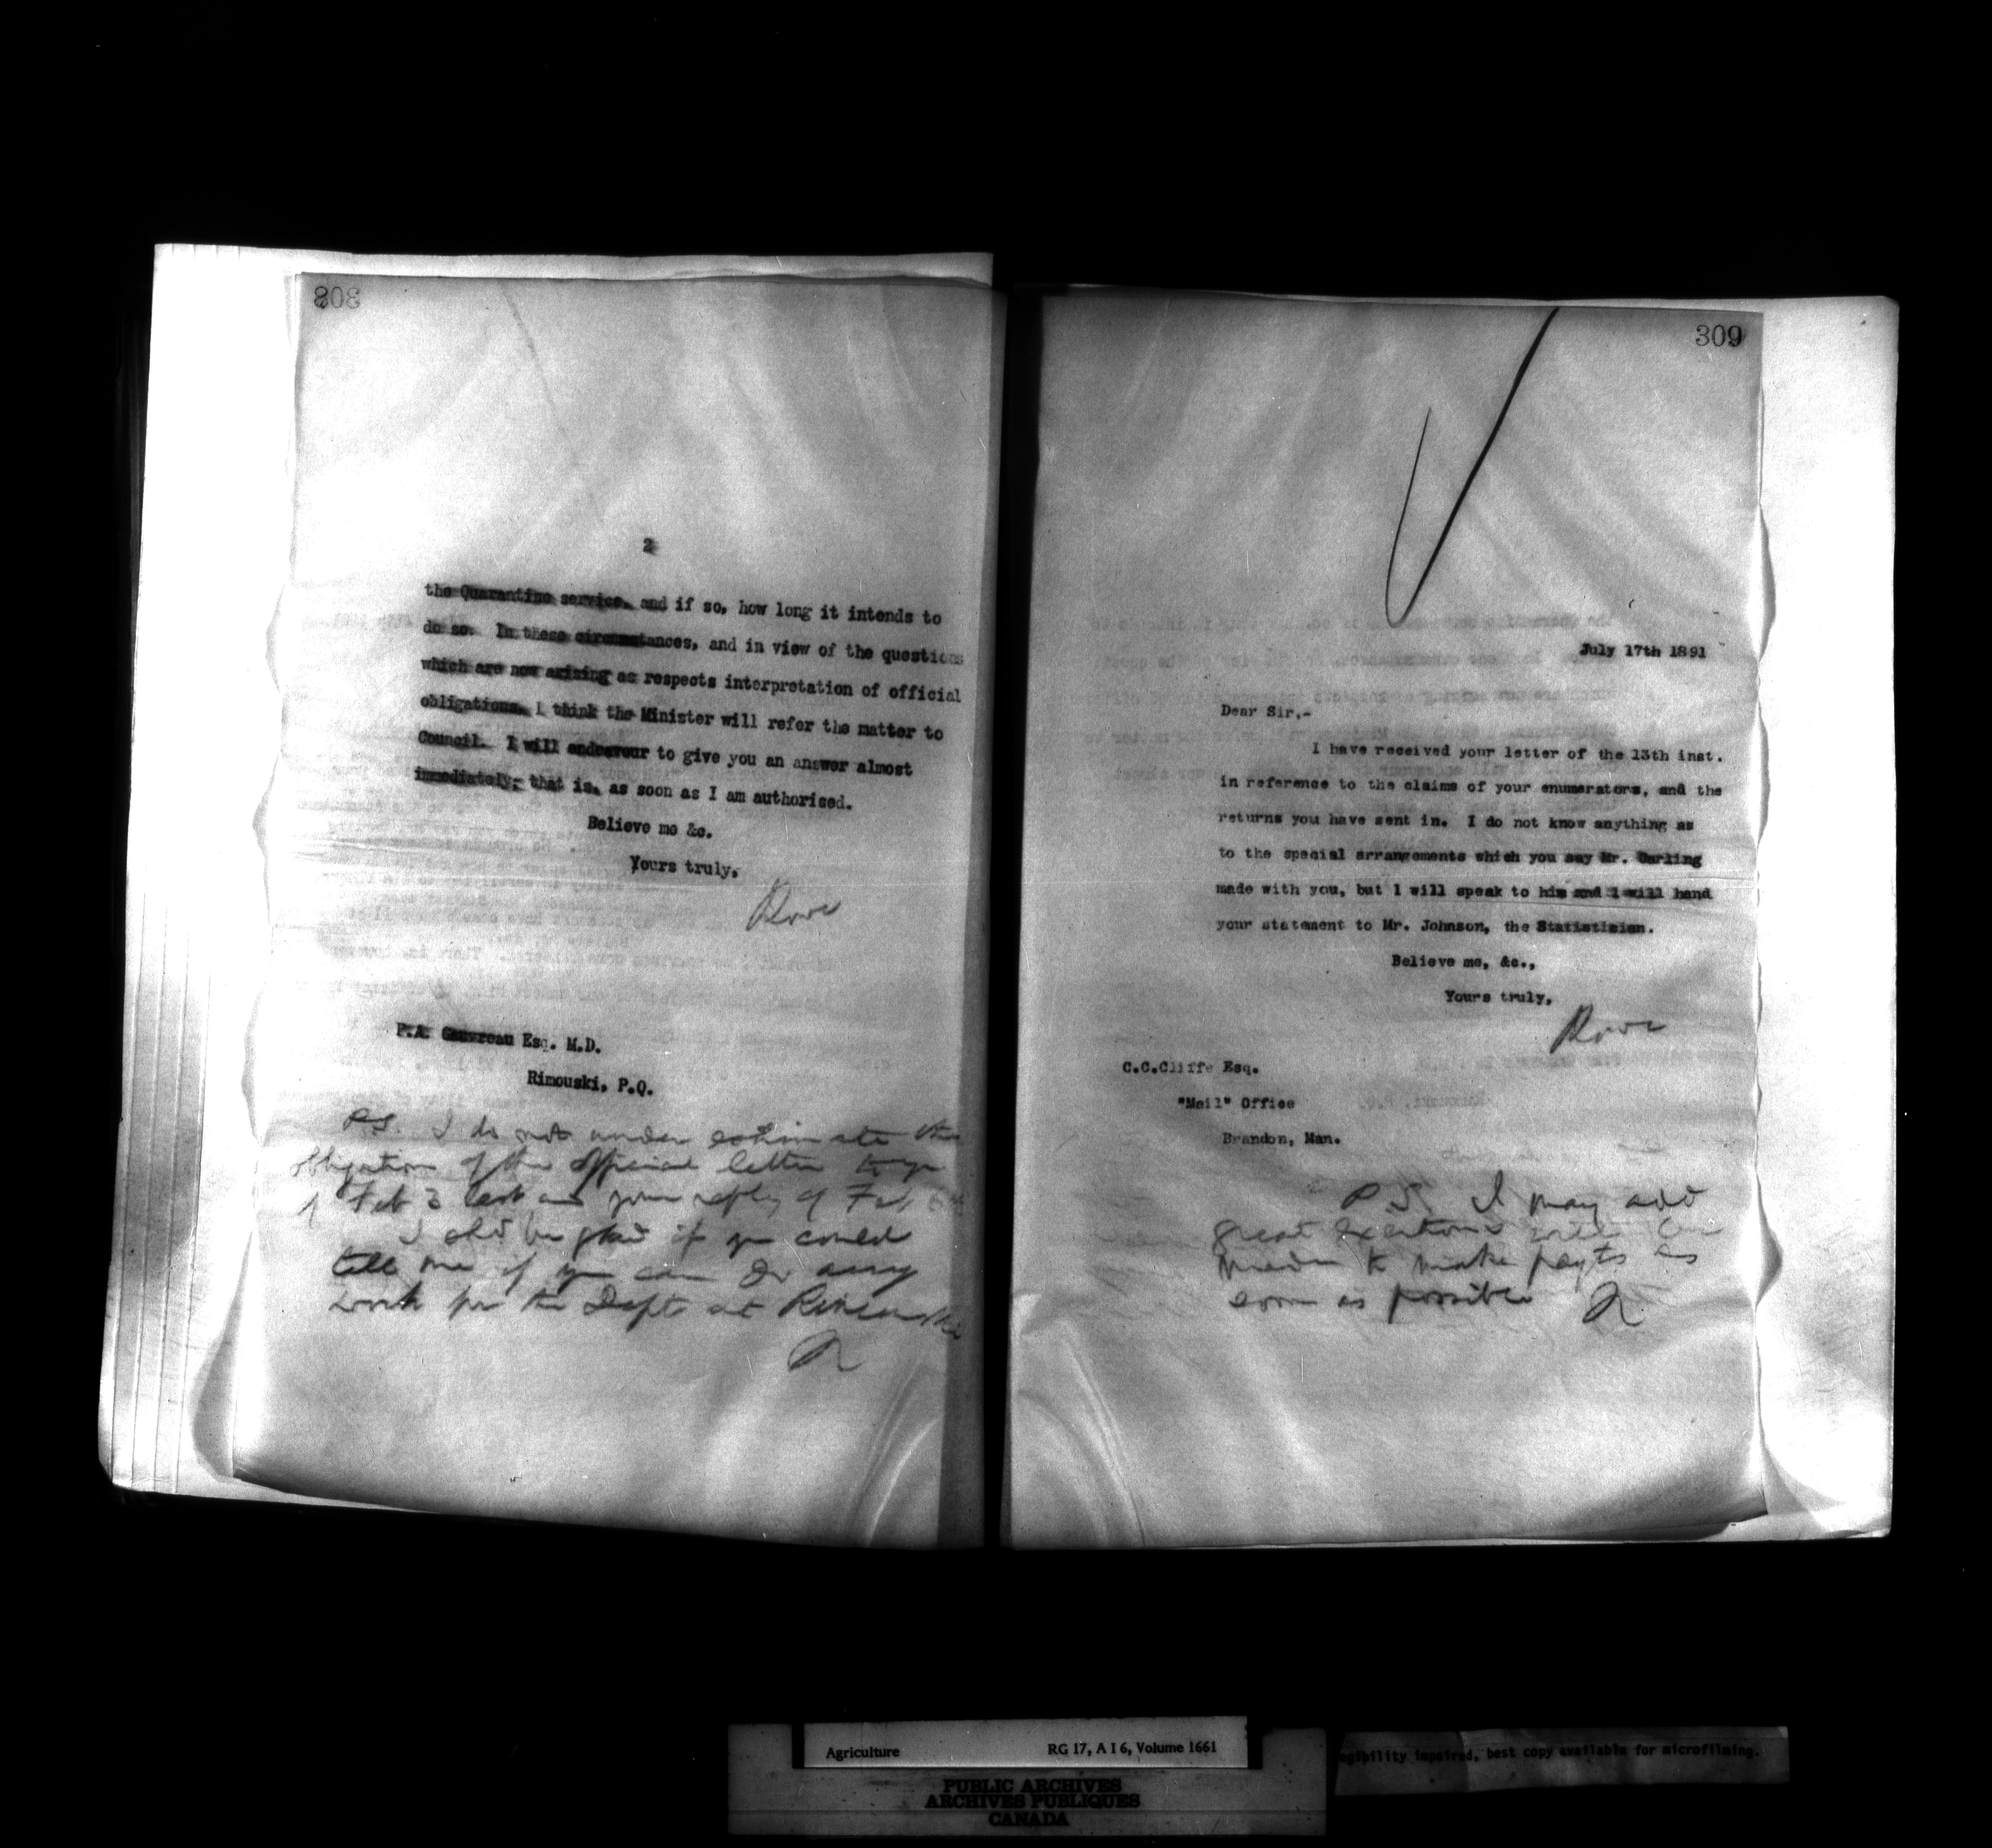 308
2
the Quarantine service, and if so, how long it intends to
do so. In these circumstances, and in view of the questions
which are now arising as respects interpretation of official
obligations, I think the Minister will refer the matter to
Council. I will endeavour to give you an answer almost
immediately, that is, as soon as I am authorised.
Believe me &c.
Yours truly,
P.A. Gauvreau Esq. M.D.
Rimouski, P.Q.
P.S. I do not under estimate the
obligation of the official letter to you
of Feb 3 last and your reply of Feb 6
I shd be glad if you could
tell me if you can do any
work for the Dept at Rimouski
R
309
July 17th 1891
Dear Sir,-
I have received your letter of the 13th inst.
in reference to the claims of your enumerators, and the
returns you have sent in. I do not know anything as
to the special arrangements which you say Mr. Carling
made with you, but I will speak to him and I will hand
your statement to Mr. Johnson, the Statistician.
Believe me, &c.,
Yours truly,
C.C.Cliffe Esq.
"Mail" Office
Brandon, Man.
P.S. I may add
great exertions will be
made to make payts as
soon as possible R
Agriculture RG 17, A I 6, Volume 1661
PUBLIC ARCHIVES
ARCHIVES PUBLIQUES
CANADA
egibility impaired, best copy available for microfilming.